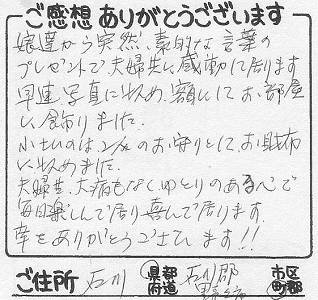 ご感想 ありがとうございます
娘達から突然、素的な言葉の
プレゼントで、夫婦共に感動して居ります
早速、写真に収め、額にして、お部屋
に飾りました。
小さいのは、2人のお守りとして、お財布
に収めました。
夫婦共、大病もなくゆとりのある心で
毎日楽しんで居り喜んで居ります。
幸をありがとうございます!!
ご住所 石川 県 都府道 石川郡 市区町郡